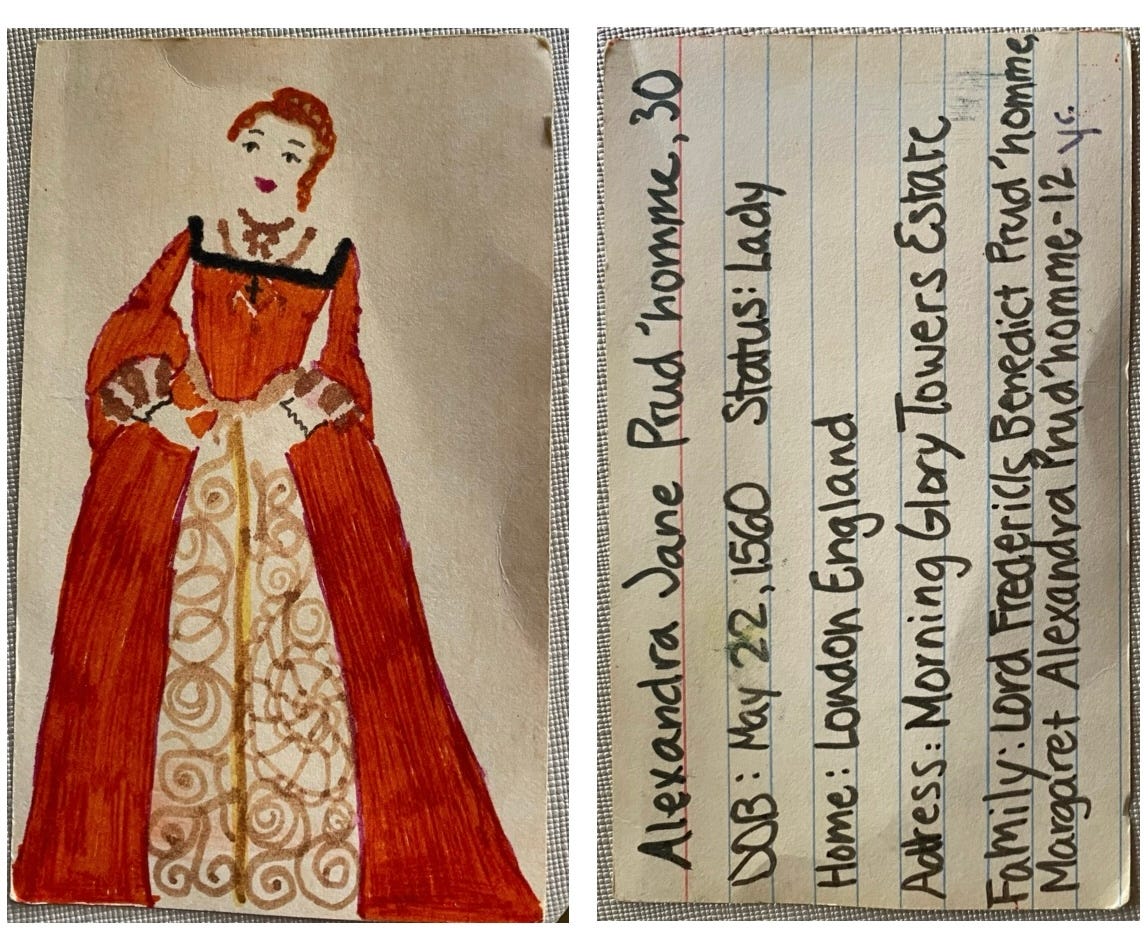 Alexandra Jane Prud'homme, 30
DOB: May 22, 1560 Status: Lady
Home: London England
Adress: Morning Glory Towers Estate
Family: Lord Frederick, Benedict Prud'homme,
Margaret Alexandra Prud'homme-12 yr.